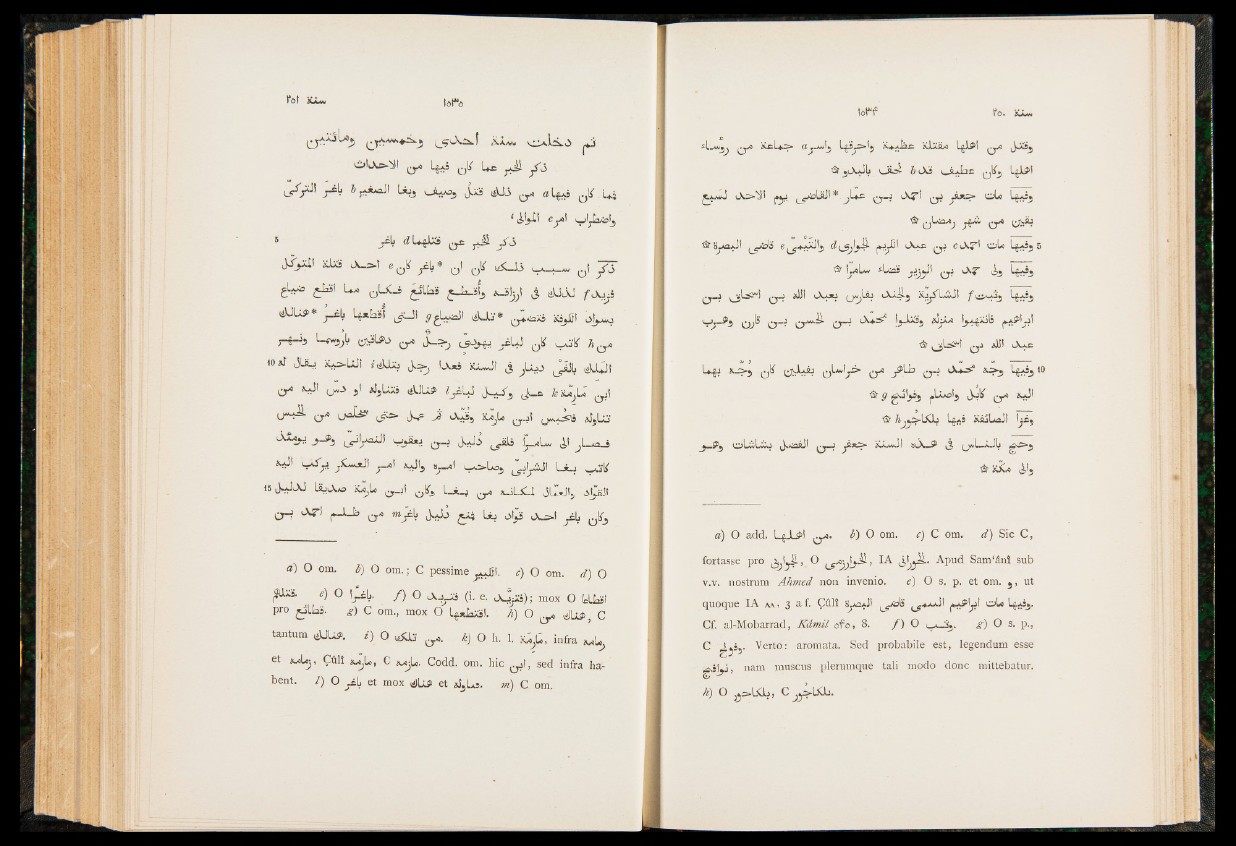 سنة ٢٥٠ ١٥٣۴
وقتل من اهلها مقتلة عظيمة واحرقها واسر a جماعة من رؤساء
اهلها وكان عطيف قد b لحق بالبدو ۞
وفيها مات جعفر بن احمد بن عمّار *القاضى يوم الاحد لسبع
بقين من شهر رمضان ۞
5 وفيها مات احمد c بن عبد الكريم الجوارى d والتيمى e قاضى البصرة ۞
وفيها ولى احمد بن الوزير قضاء سامرّا ۞
وفيها وثبت f الشاكريّة والجند بفارس بعبد الله بن اسحاق بن
ابرهيم فانتهبوا منزله وقتلوا محمّد بن الحسن بن قارن وهرب
عبد الله بن اسحاق ۞
10 وفيها وجّه محمّد بن طاهر من خراسان بفيلين كان وُجّه بهما
اليه من كابُل واصنام وفوائح g ۞
وغزا الصائفة فيها بلكاجور h ۞
وحجّ بالناس فى هذه السنة جعفر بن الفضل بشاشات وهو
والى مكّة ۞
a) O add. من اهلها. b) O om. c) C om. d) Sic C,
fortasse pro الجوارى, O الجوازرمى, IA الجورانى. Apud Sam'ânî sub
v.v. nostrum Ahmed non invenio. e) O s. p. et om. و, ut
quoque IA ٨٨, 3 a f. Çûlî وفيها مات ابراهيم التيمى قاضى البصرة.
Cf. al-Mobarrad, Kâmil ٥٢٥, 8. f) O وثب. g) O s. p.,
C وفولح. Verto: aromata. Sed probabile est, legendum esse
نوافج, nam muscus plerumque tali modo donc mittebatur.
h) O بلكاحور, C بلكاجُور.
سنة ٢٥١ ١٥٣٥
ثم دخلت سنة احدى وخمسين ومائتين
ذكر الخبر عما كان فيها من الاحداث
فما كان فيها a من ذلك قتل وصيف وبغا الصغير b باغر التركىّ
واضطراب امر c الموالى،
5 ذكر الخبر عن قتلهما d باغر
ذُكر ان سبب ذلك كان ان *باغر كان e احد قتلة المتوكّل
فزيد f لذلك فى ارزاقه واقطع قطائع فكان مما اقطع ضياع
بسواد الكوفة فتضمّن *تلك الضياع g التى أقطعها باغر *هنالك
من h كاتب كان لباغر يهودىّ رجل من دهاقين باروسما ونهر
10 الملك بالفَىْ دينار فى السنة فعدا رجل بتلك i الناحية يقال له
ابن مارمّة k على وكيل لباغر l هنالك فتناوله او دسّ اليه من
تناوله فحُبس ابن مارمّة وقُيّد ثم عمل حتى تخلّص من الحبس
فصار الى سامرّا فلقى دُليل بن يعقوب النصرانىّ وهو يومئذ
كاتب بغا الشرابىّ وصاحب امره واليه امر العسكر يركب اليه
15 القوّاد والعمّال لمكانه من بغا وكان ابن مارمّة صديقا لدليل
وكان باغر احد قوّاد بغا فمنع دُليل باغر m من ظلم احمد بن
a) O om. b) O om.; C pessime الكبير. c) O om. d) O
e) O باغرا. f) O (i. e. فتزيّد); mox O
pro قطائع. g) C om., mox O h) O هنالك من, C
tantum هنالك. i) O من تلك. k) O h. l. مارمة, infra
et , Çûlî , C . Codd. om. hic ابن, sed infra ha-
bent. l) O باغر et mox هناك et . m) C om.